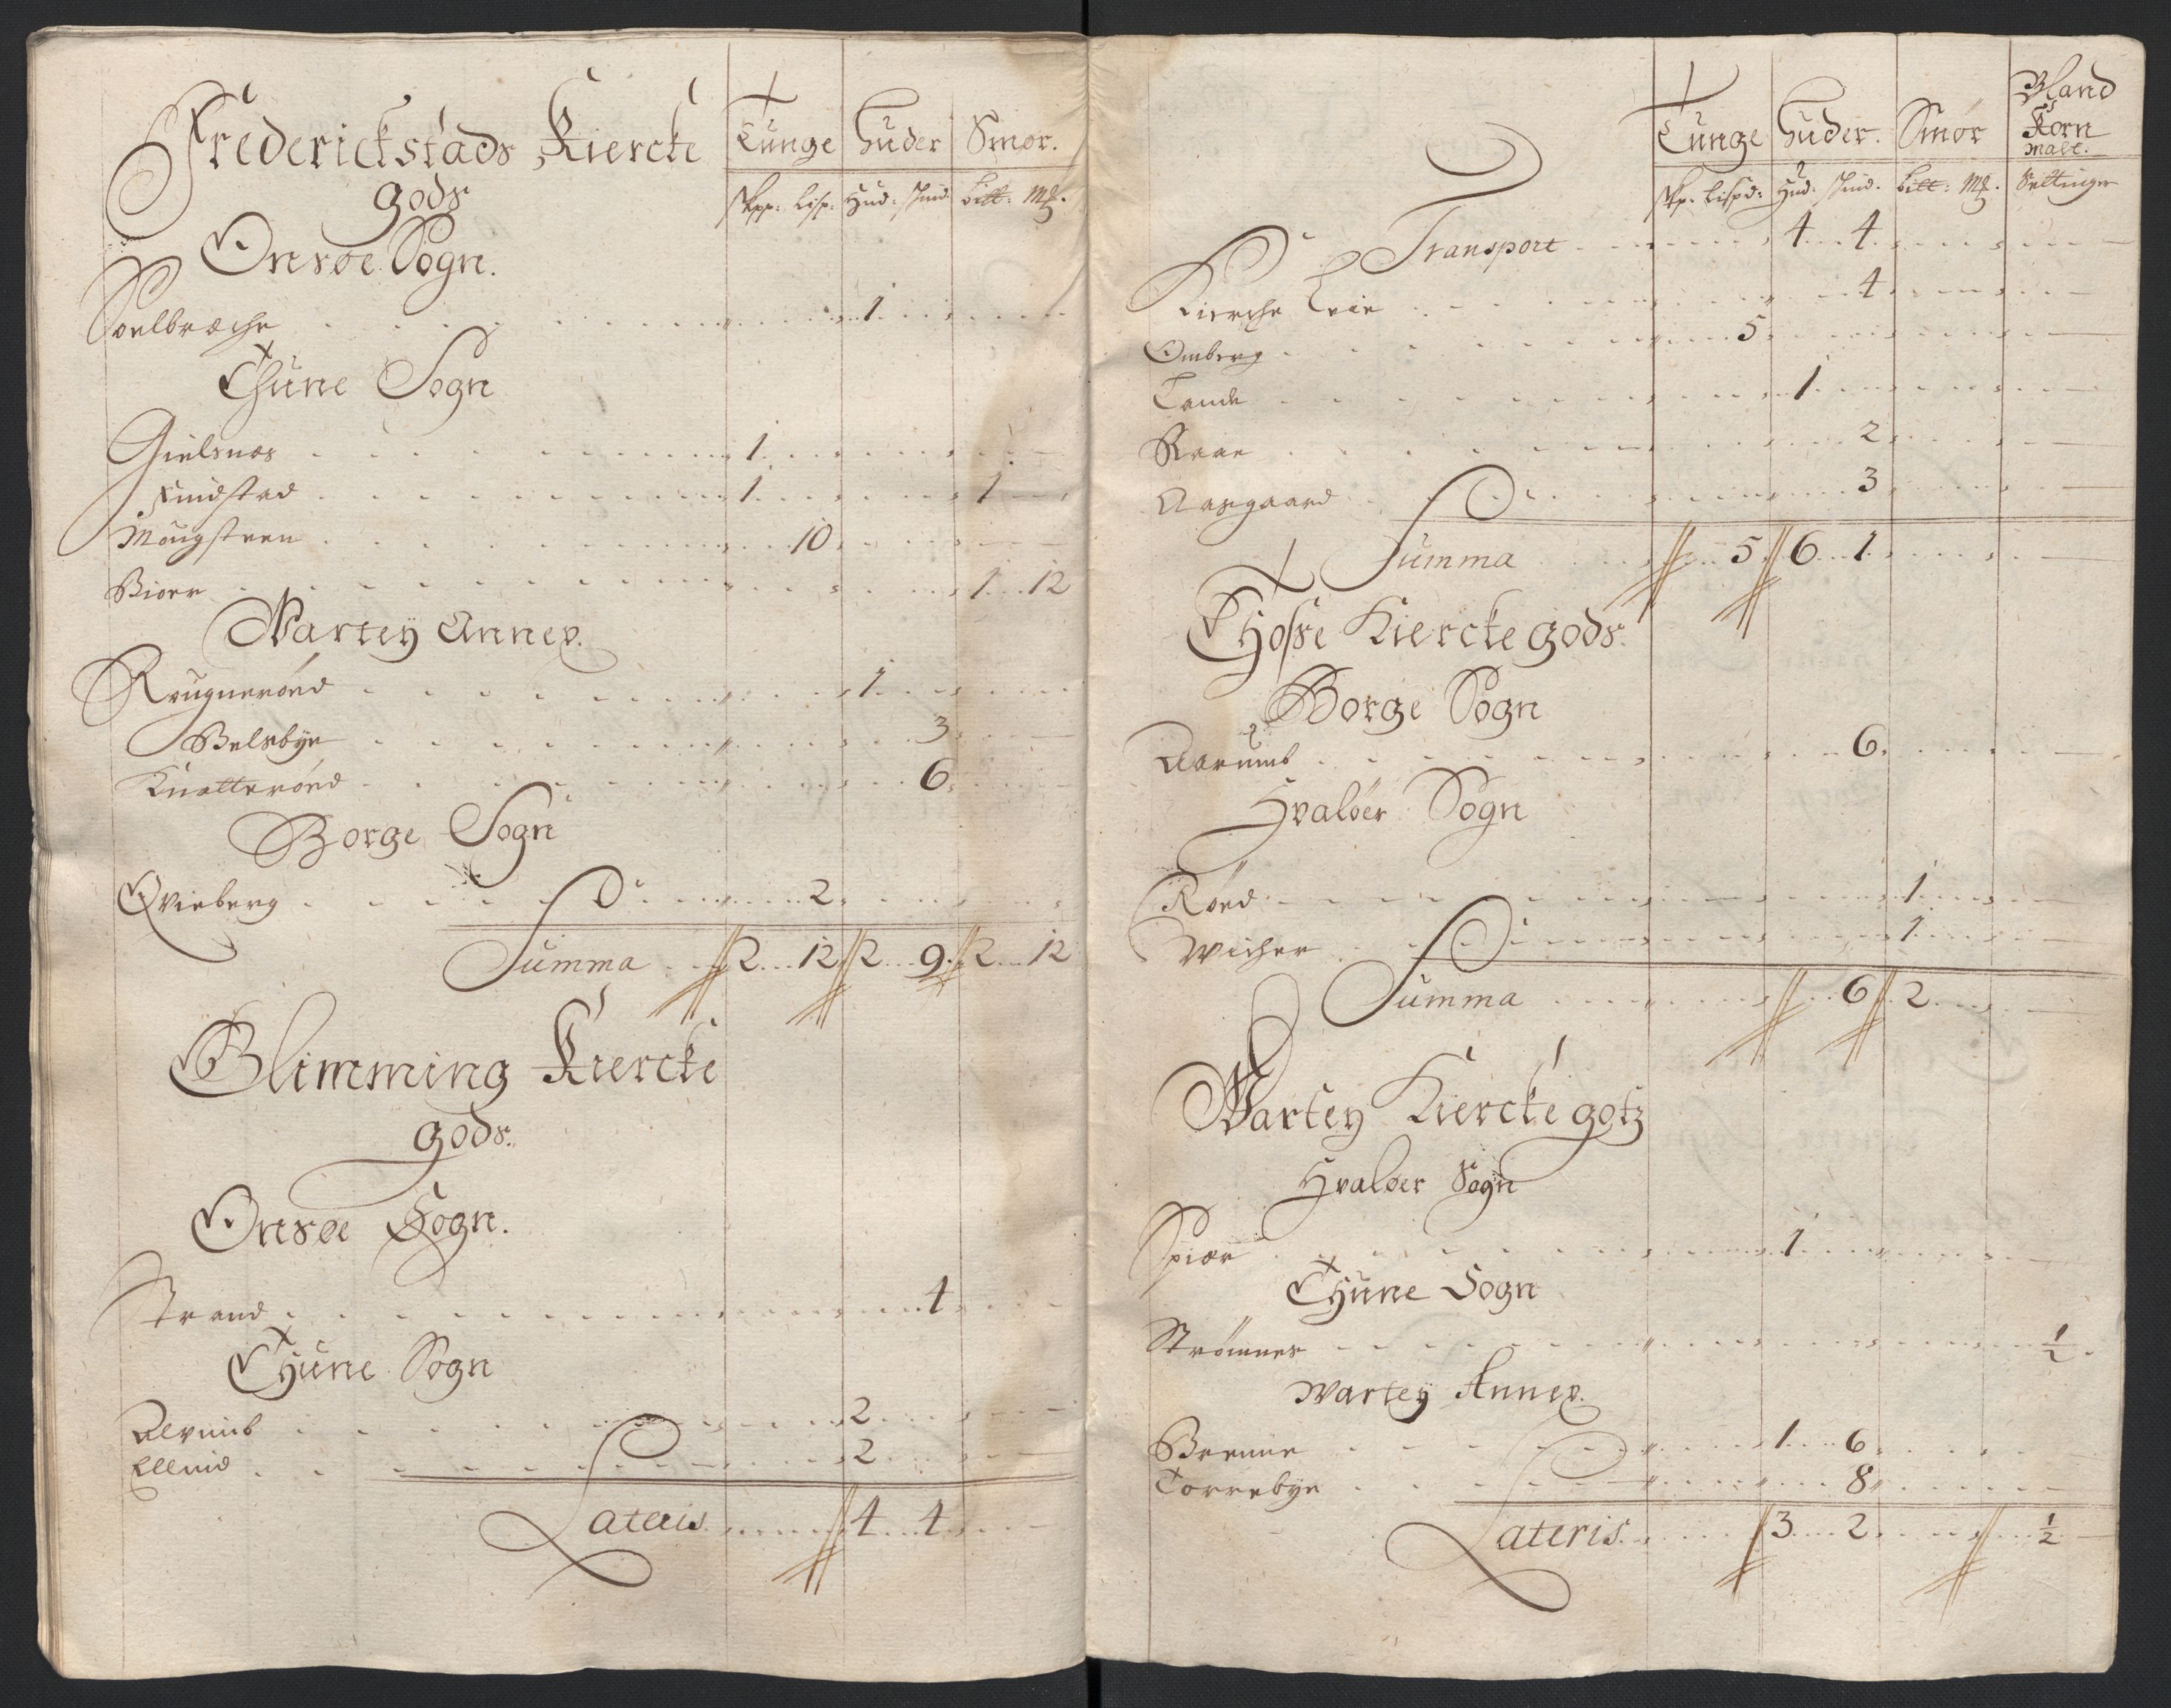 Frederickstads Kiercke
gods
Tunge Huder Smør.
skpp: Lisp: Hud: skind bitt: Mk.
Onsøe Sogn.
Soelbræche 1
Thune Sogn
Gielsnæs 1
Findstad 1 1
Mougsteen 10
Biørn 1 12
Wartey Annex.
Raugnerød 1
Belsbye 3
Knatterød 6
Borge Sogn
Qvieberg 2
Summa 2 12 2 9 2 12
Glimming Kiercke
gods.
Onsøe Sogn.
Strand 4
Thune Sogn
Alvimb 2
Ellind 2
Lateris 4 4
Tunge Huder. Smør Bland Korn malt.
skp: Lispd: Hud: skind. bitt: Mk. Settinger
Transport 4 4
Kierche Leie 4
Omberg 5
Lande 1
Raae 2
Aasgaard 3
Summa 5 6 1
Thosse Kiercke gods.
Borge Sogn
Aarumb 6
Hvaløer Sogn
Rød 1
Wicher 1
Summa 6 2
Wartey Kiercke gotz
Hvaløer Sogn
Spiær 1
Thune Sogn
Strømnes 1/2
Wartey Annex.
Brenne 1 6
Torrebye 8
Lateris 3 2 1/2